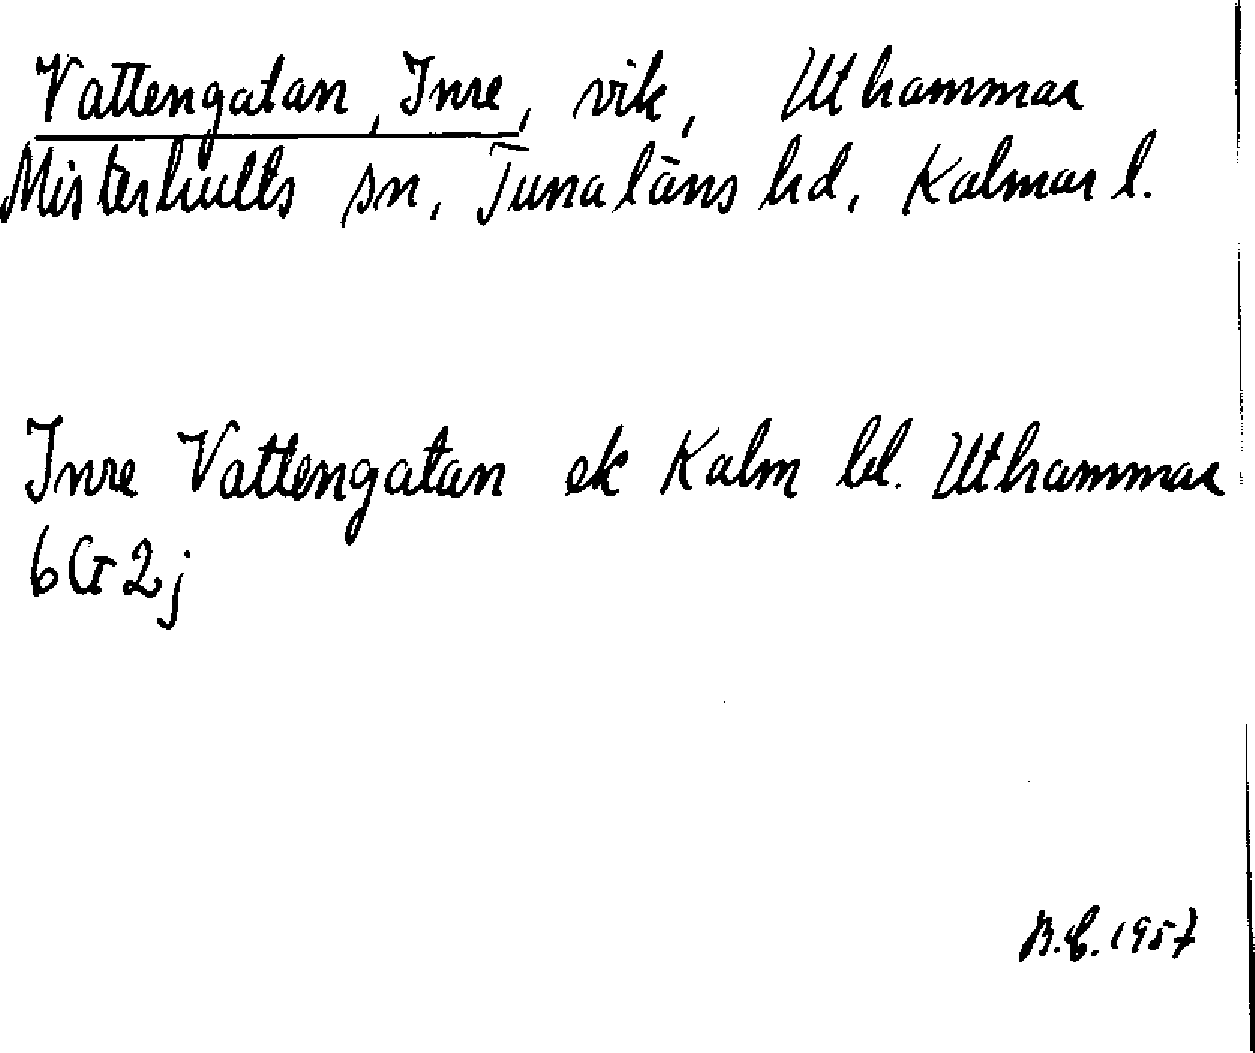 Vattengatan, Inre, vik, Uthammar
Misterhults sn, Tunaläns hd, Kalmar l.
Inre Vattengatan ek Kalm bl. Uthammar
6G2j
B.E. 1957